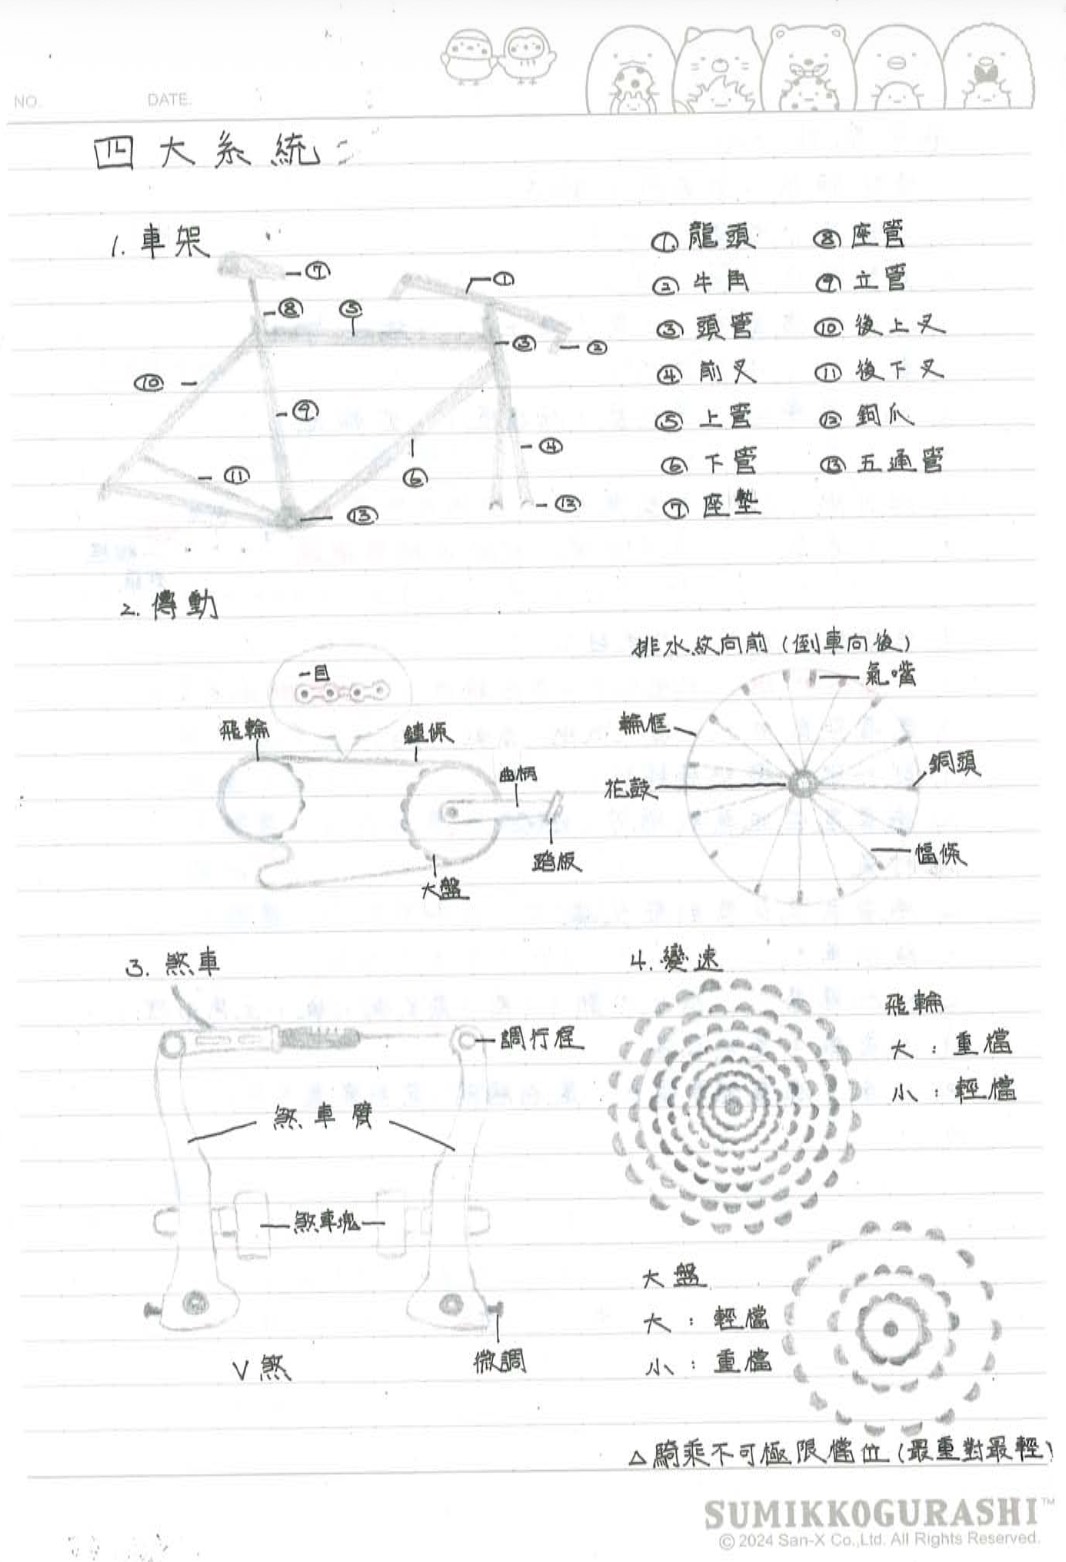 NO.
DATE.
四大系統:
1. 車架
① 龍頭
② 牛角
③ 頭管
④ 前叉
⑤ 上管
⑥ 下管
⑦ 座墊
⑧ 座管
⑨ 立管
⑩ 後上叉
⑪ 後下叉
⑫ 鉤爪
⑬ 五通管
⑦
①
⑧
⑤
③
②
⑩
⑨
④
⑪
⑥
⑫
⑬
2. 傳動
一目
飛輪
鏈條
曲柄
踏板
大盤
排水紋向前(倒車向後)
氣嘴
輪框
銅頭
花鼓
幅條
3. 煞車
調行程
煞車臂
煞車塊
V煞
微調
4. 變速
飛輪
大:重檔
小:輕檔
大盤
大:輕檔
小:重檔
△騎乘不可極限檔位(最重對最輕)
SUMIKKOGURASHI™
© 2024 San-X Co.,Ltd. All Rights Reserved.